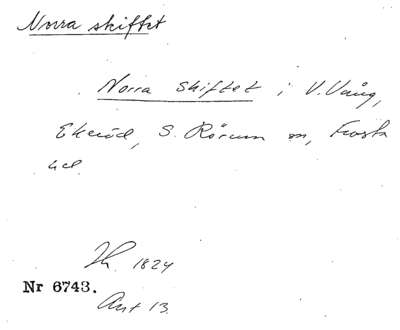 Norra skiftet
Norra skiftet i V. Vång,
Ekeröd, S. Rörum m, Frosta
hd.
1824
Nr 6743.
Ant 13.